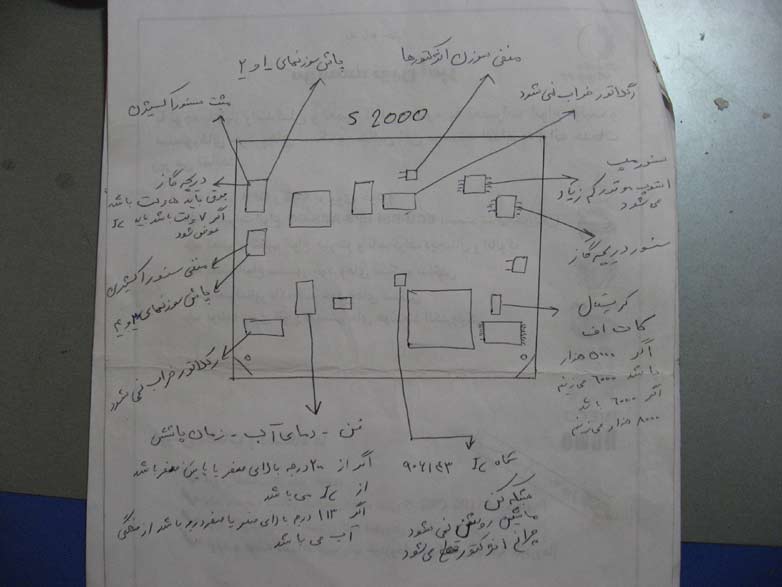 پاش سوزنهای ۱ و ۲
منفی سوزن انژکتورها
رگلاتور خراب نمی شود
مثبت سنسور اکسیژن
S 2000
دریچه گاز
برق باید ۵ ولت باشد
اگر ۷ ولت باشد باید Ic
عوض شود
منفی سنسور اکسیژن
پاش سوزنهای ۳ و ۴
رگلاتور خراب نمی شود
سنسور مپ
استپ موتور کم زیاد
می شود
سنسور دریچه گاز
کریستال
کات اف
اگر ۵۰۰۰ هزار
باشد ۶۰۰۰ می زنیم
اگر ۶۰۰۰ باشد
۸۰۰۰ هزار می زنیم
فن - دمای آب - زمان پاشش
اگر از ۲۰ درجه بالای صفر یا پایین صفر باشد
از Ic می باشد
اگر ۱۱۳ درجه بالای صفر یا صفر درو باشد از
آب می باشد
شماره Ic ۹۰۶۱۴۳
ماشین روشن نمی شود
چراغ انژکتور قطع می شود